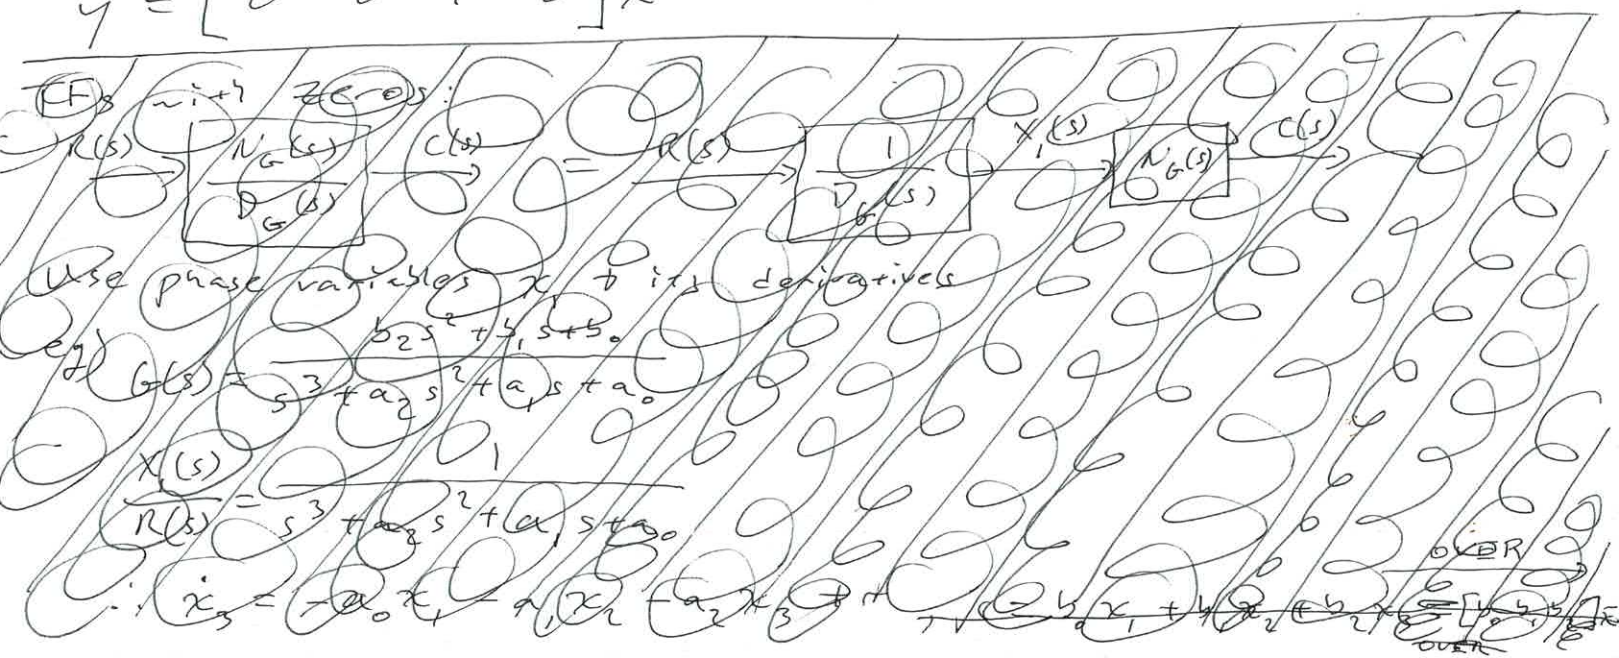 y = [ ] x
TFs with zeros:
R(s) → N_G(s)/D_G(s) C(s) → = R(s) → 1/D_G(s) X₁(s) → N_G(s) C(s) →
Use phase variables x₁ + its derivatives
eg) G(s) = (b₂s² + b₁s + b₀)/(s³ + a₂s² + a₁s + a₀)
X₁(s)/R(s) = 1/(s³ + a₂s² + a₁s + a₀)
OVER
∴ ẋ₃ = -a₀x₁ - a₁x₂ - a₂x₃ + r , y = b₀x₁ + b₁x₂ + b₂x₃ = [b₀ b₁ b₂] x
OVER